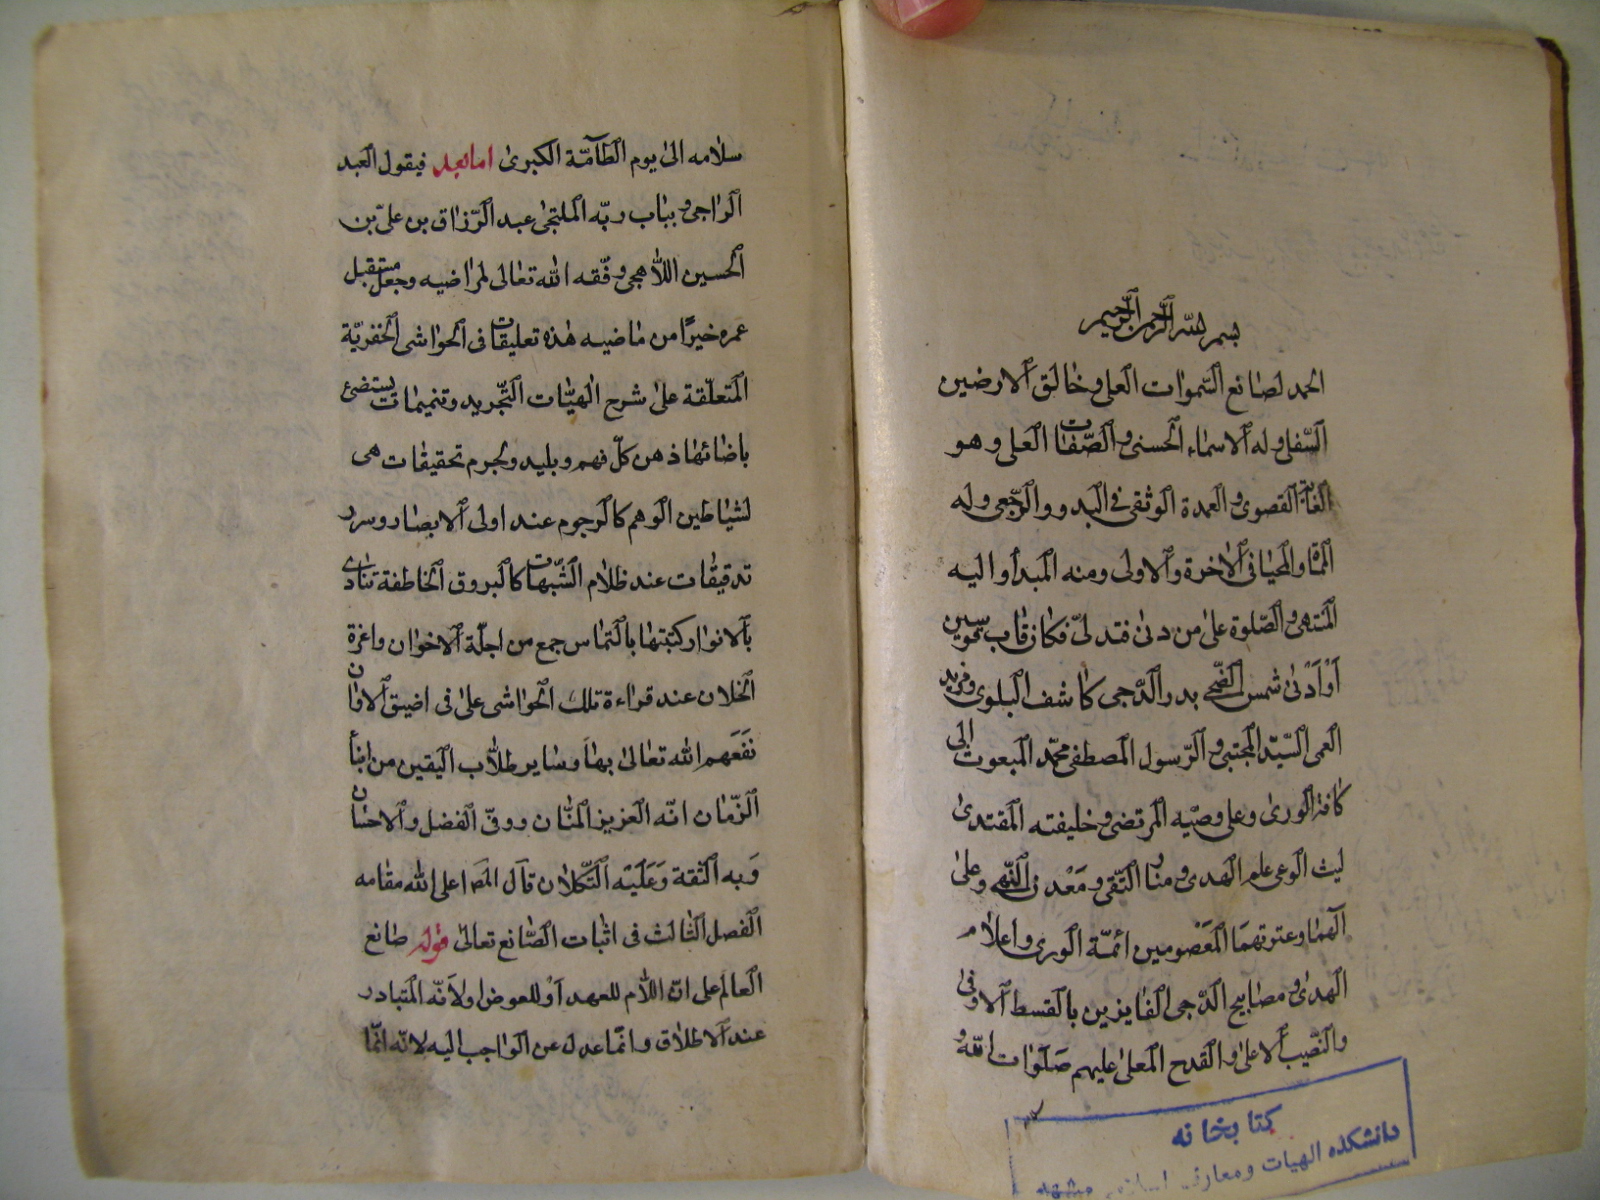 بسم الله الرحمن الرحيم
الحمد لصانع السموات العلى وخالق الارضين
السفلى وله الاسماء الحسنى والصفات العلى وهو
الغاية القصوى والعمدة الوثقى فى البدو والرجعى وله
المماة والمحيا فى الاخرة والاولى ومنه المبدأ واليه
المنتهى والصلوة على من دنى فتدلى فكان قاب قوسين
أو أدنى شمس الضحى بدر الدجى كاشف البلوى
العمى السيد المجتبى والرسول المصطفى محمد المبعوث الى
كافة الورى وعلى وصيه المرتضى وخليفته المقتدى
ليث الوعى علم الهدى ومنار التقى ومعدن النهى وعلى
آلهما وعترتهما المعصومين ائمة الورى واعلام
الهدى ومصابيح الدجى الفايزين بالقسط الاوفى
والنصيب الاعلى والقدح المعلى عليهم صلوات الله و
كتابخانه
دانشكده الهيات ومعارف اسلامى مشهد
سلامه الى يوم الطامة الكبرى اما بعد فيقول العبد
الراجى وبباب ربه الملتجى عبد الرزاق بن على بن
الحسين اللاهجى وفقه الله تعالى لمراضيه وجعل مستقبل
عمره خيرا من ماضيه هذه تعليقات فى الحواشى الخفرية
المتعلقة على شرح الهيات التجريد وتتميمات يستضئ
باضائها ذهن كل فهم وبليد ولجرم تحقيقات هى
لشياطين الوهم كالرجوم عند اولى الابصار وسرد
تدقيقات عند ظلام الشبهات كالبروق الخاطفة تنادى
بالانوار وكتبتها بالتماس جمع من اجلة الاخوان واعزة
الخلان عند قراءة تلك الحواشى على فى اضيق الاوان
نفعهم الله تعالى بها وساير طلاب اليقين من ابنأ
الزمان انه العزيز المنان ووفى الفضل والاحسان
وبه الثقة وعليه التكلان قال المصـ اعلى الله مقامه
الفصل الثالث فى اثبات الصانع تعالى قوله صانع
العالم على ان اللام للعهد أو للعوض اولانه المتبادر
عند الاطلاق وانما عدل عن الواجب اليه لانه انما